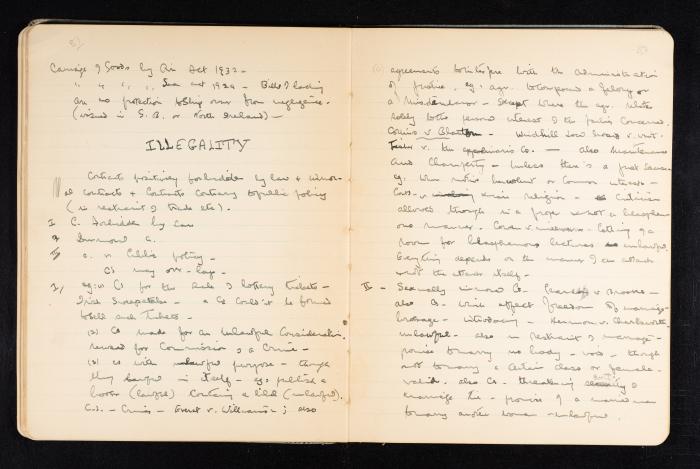 Carriage of Goods by Air Act 1932 -
" " " " Sea Act 1924 - Bills of lading
are no protection to ship owner from negligence.
(issued in G.B. or North Ireland) -
ILLEGALITY
Contracts positively forbidden by law + immor-
al contracts + Contracts Contrary to public policy
(in restraint of trade etc).
I C. Forbidden by law
II Immoral C.
III C. v Public policy -
Cs may over-lap -
I, eg: Cs for the Sale of lottery tickets -
Irish Sweepstakes - a Co Couldn't be formed
to sell such Tickets -
(2) Cs made for an Unlawful Consideration.
reward for Commission of a Crime -
(3) Cs with unlawful purpose - though
they lawful in itself - eg: publish a
book (lawful) Containing a libel (unlawful).
Everet v. Williams; also
agreements to interfere with the administration
of justice, eg: agr. to compound a felony or
a Misdemeanor - Except where the agr. relates
solely to the personal interest of the parties Concerned.
Windhill Local Board v. Vint.
also Maintenance
and Champerty - Unless there's a just Excuse
eg: When motive benevolent or Common interest -
religion - Criticism
allowed though in a proper + not a blasphem-
ous manner. Cowan v. Milbourn - Letting of a
room for blasphemous lectures unlawful.
Everything depends on the manner of an attack
not the attack itself -
II - Sexually immoral Cs. Pearce v Brooks -
also Cs. which affect freedom of marriage -
brokage - introducing - Hermann v. Charlesworth -
unlawful - also in restraint of marriage -
promise to marry no body - void - though
not to marry a Certain class or female -
valid. also Cs. threatening sanctity of
marriage tie - promise of a married man
to marry another woman - unlawful.